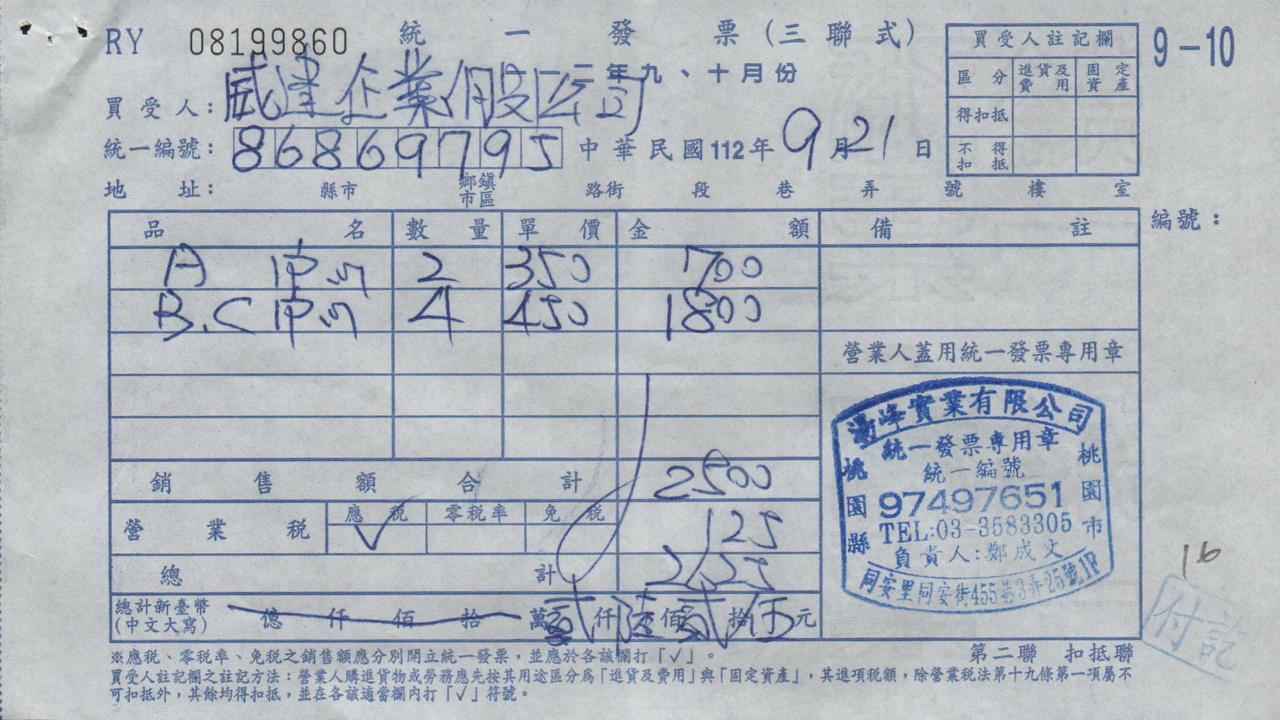 RY 08199860 統一發票(三聯式)
二年九、十月份
9-10
買受人註記欄
區分 進貨及費用 固定資產
得扣抵
不得扣抵
買受人：威達企業股公司
統一編號：86869795 中華民國112年9月21日
地址： 縣市 鄉鎮市區 路街 段 巷 弄 號 樓 室
品名 數量 單價 金額 備註 編號：
A 2 350 700
B.C 4 450 1800
營業人蓋用統一發票專用章
銷售額合計 2500
營業稅 應稅 零稅率 免稅 125
√
總計 2625
總計新臺幣(中文大寫) 億仟佰拾萬貳仟陸佰貳拾伍元
峰實業有限公司
統一發票專用章
統一編號
97497651
TEL:03-3583305
負責人:鄭成文
桃園縣 桃園市
同安里同安街455巷3弄25號1F
16
付訖
※應稅、零稅率、免稅之銷售額應分別開立統一發票，並應於各該欄打「√」。
第二聯 扣抵聯
買受人註記欄之註記方法：營業人購進貨物或勞務應先按其用途區分為「進貨及費用」與「固定資產」，其進項稅額，除營業稅法第十九條第一項屬不
可扣抵外，其餘均得扣抵，並在各該適當欄內打「√」符號。